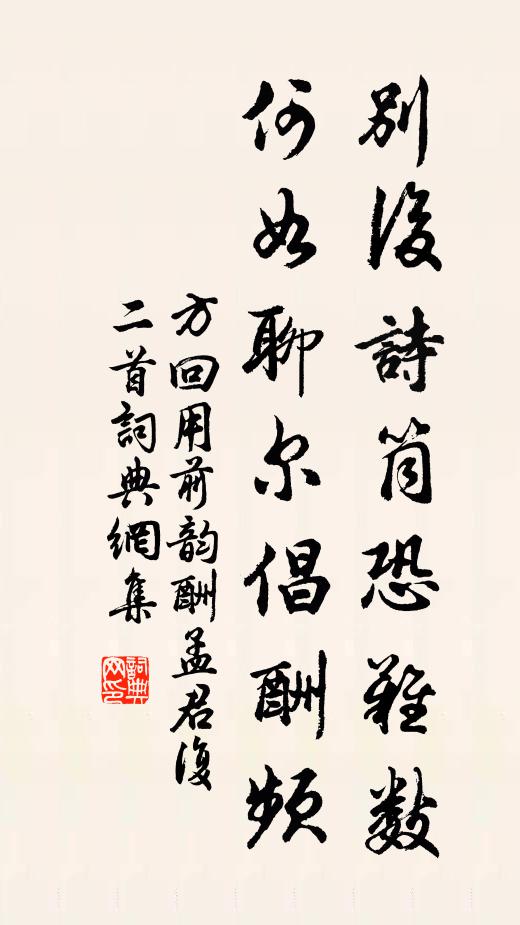 別後詩筒恐難數
何如聊尔倡酬頻
方回用前韵酬孟君復
二首詞典網集
詞典網印